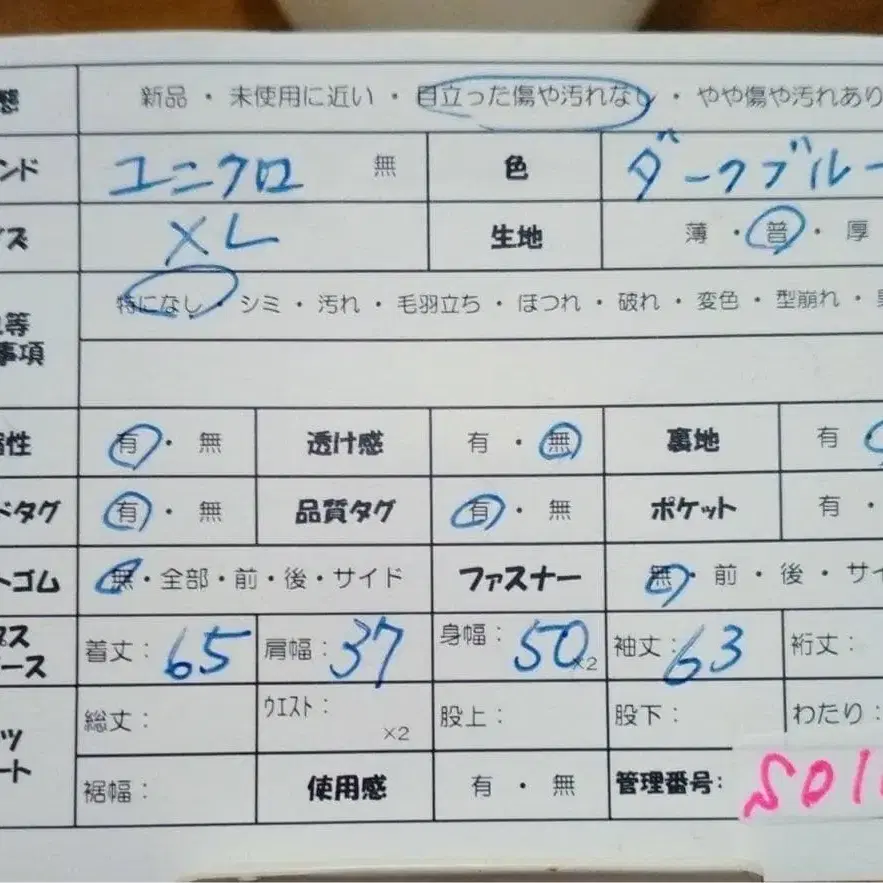 態 新品 ・ 未使用に近い ・ 目立った傷や汚れなし ・ やや傷や汚れあり
ンド ユニクロ 無 色 ダークブルー
イズ XL 生地 薄 ・ 普 ・ 厚
特になし ・ シミ ・ 汚れ ・ 毛羽立ち ・ ほつれ ・ 破れ ・ 変色 ・ 型崩れ ・
等
事項
性 有 ・ 無 透け感 有 ・ 無 裏地 有
ドタグ 有 ・ 無 品質タグ 有 ・ 無 ポケット 有 ・
トゴム 無・全部・前・後・サイド ファスナー 無 ・ 前 ・ 後 ・ サイ
ース 着丈: 65 肩幅: 37 身幅: 50 ×2 袖丈: 63 裄丈:
ツ 総丈: ウエスト: ×2 股上: 股下: わたり:
ート 裾幅: 使用感 有 ・ 無 管理番号: S01